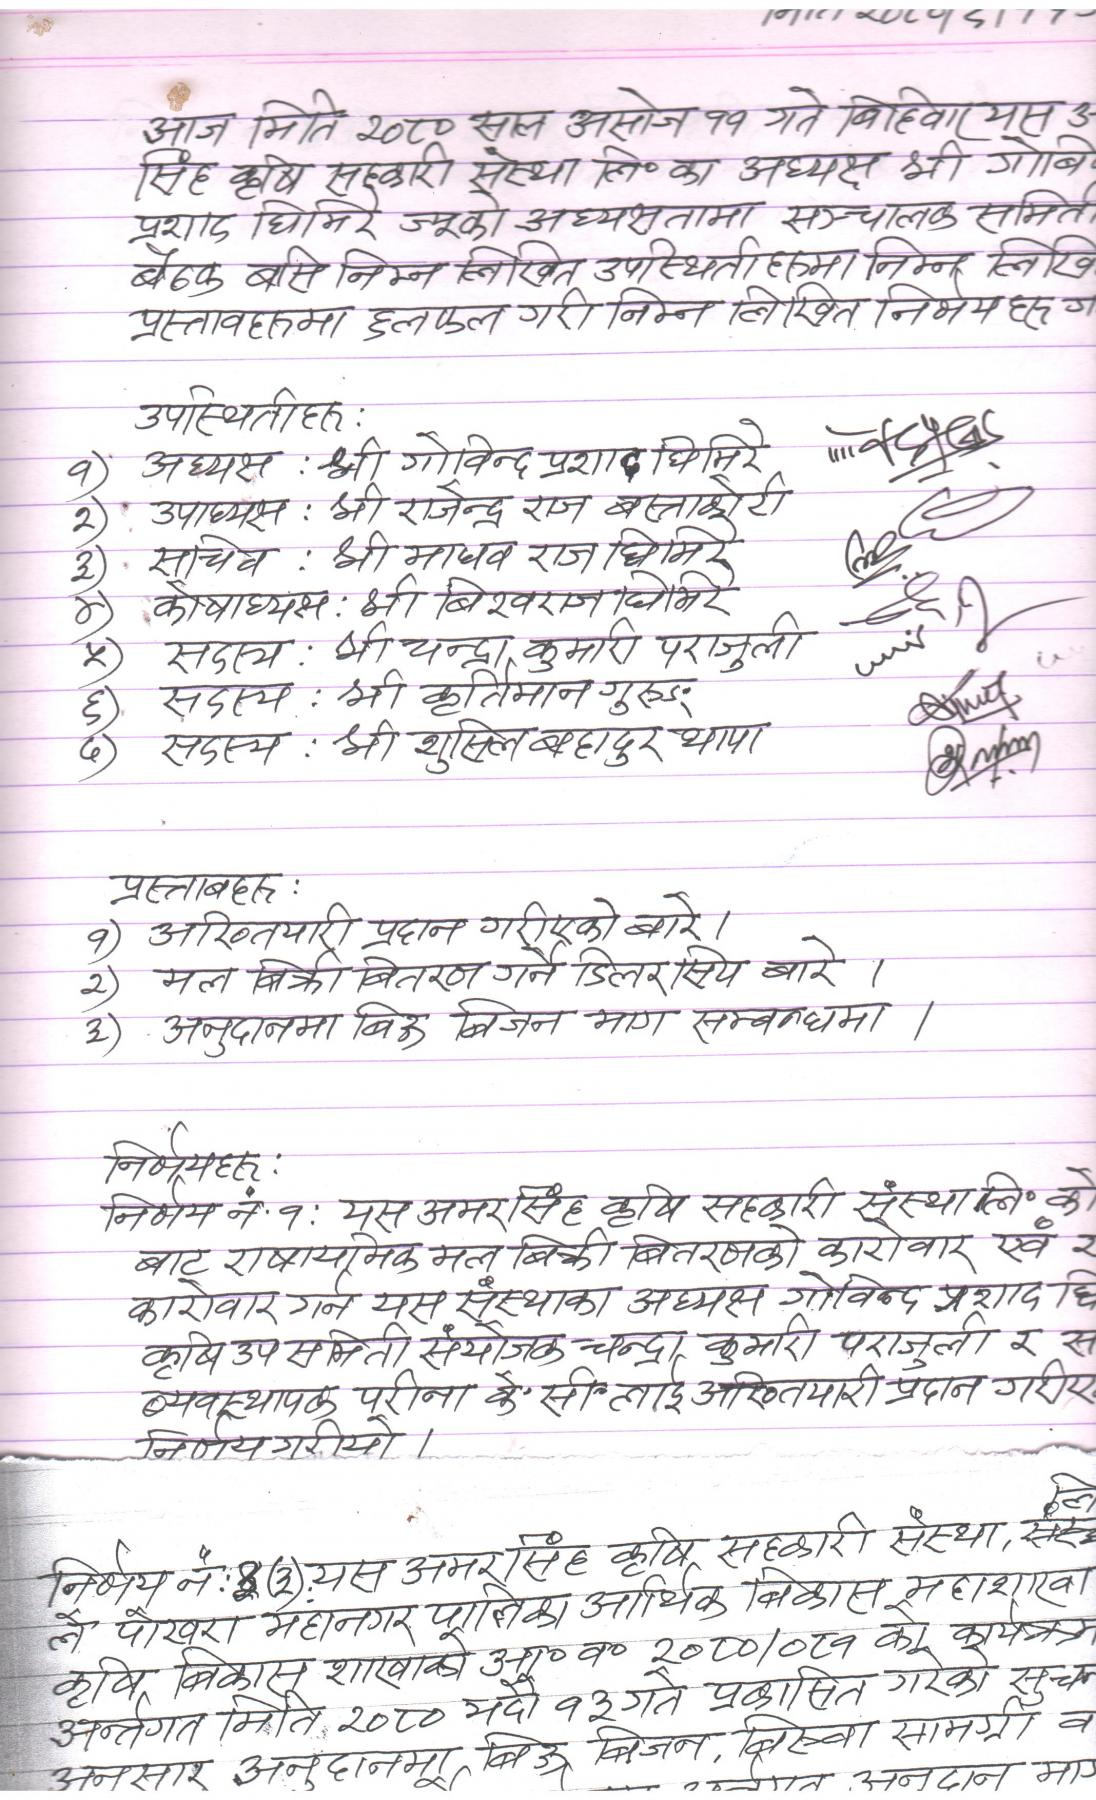 मिति २०८०।६।११
आज मिति २०८० साल असोज ११ गते बिहिवार यस अ
सिंह कृषि सहकारी संस्था लि० का अध्यक्ष श्री गोबि
प्रशाद घिमिरे ज्यूको अध्यक्षतामा सञ्चालक समिती
बैठक बसि निम्न लिखित उपस्थितीहरुमा निम्न लिखि
प्रस्तावहरुमा छलफल गरी निम्न लिखित निर्णयहरु ग
उपस्थितीहरु :
१) अध्यक्ष : श्री गोविन्द प्रशाद घिमिरे
२) उपाध्यक्ष : श्री राजेन्द्र राज बस्ताकोटी
३) सचिव : श्री माधव राज घिमिरे
४) कोषाध्यक्ष : श्री बिश्वराज घिमिरे
५) सदस्य : श्री चन्द्रा कुमारी पराजुली
६) सदस्य : श्री कृर्तिमान गुरुङ
७) सदस्य : श्री शुसिल बहादुर थापा
प्रस्ताबहरु :
१) अख्तियारी प्रदान गरीएको बारे ।
२) मल बिक्री बितरण गर्ने डिलर सिप बारे ।
३) अनुदानमा बिऊ बिजन माग सम्बन्धमा ।
निर्णयहरु :
निर्णय नं. १ : यस अमरसिंह कृषि सहकारी संस्था लि० को
बाट राषायमिक मल बिक्री बितरणको कारोवार एवं
कारोवार गर्न यस संस्थाका अध्यक्ष गोविन्द प्रशाद घि
कृषि उप समिती संयोजक चन्द्रा कुमारी पराजुली र स
ब्यवस्थापक पुरीना के. सी. लाई अख्तियारी प्रदान गरीए
निर्णय गरीयो ।
लि
निर्णय नं : (३) : यस अमरसिंह कृषि सहकारी संस्था, संस्थ
ले पोखरा महानगर पालिका आर्थिक बिकास महाशाखा
कृषि बिकास शाखाको आ० व० २०८०/०८१ को कार्यक्रम
अर्न्तगत मिति २०८० भदौ १३ गते प्रकासित गरेको सुचन
अनुसार अनुदानमा बिऊ बिजन, बिरुवा सामग्री
अर्न्तगत अनुदान माग